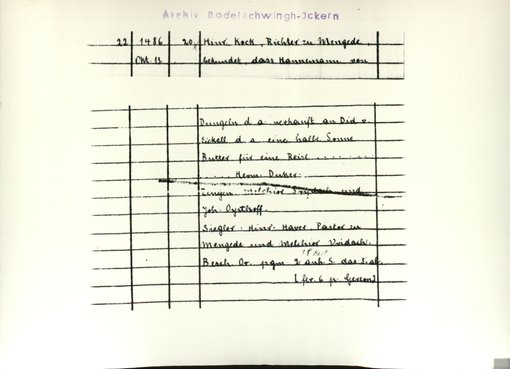 Archiv Bodelschwingh-Ickern
22 1486 20, Hinr. Kock, Richter zu Mengede,
Okt. 13 bekundet, dass Hannemann von
Dungeln d. a. verkauft an Did. v.
Eickell d. a. eine halbe Tonne
Butter für eine Reise . . . . . . .
. . . . Herm. Duker.
Zeugen: Melchior und
Joh.
Siegler: Hinr. Haver, Pastor zu
Mengede und Melchior Vridach.
Besch. Or. pgm. 2 anh. S. das 1. ab.
[ fsz. 6 p. Gereon]